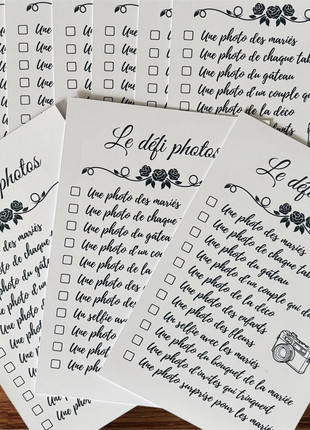 Une photo des mariés
Une photo de chaque tab
Une photo du gateau
Une photo d'un couple qu
Une photo de la déco
photos
photo des mariés
Une photo de chaque
Une photo du gateau
Une photo d'un
Une photo
Le défi photos
Une photo des mariés
Une photo de chaque
Une photo du gateau
Une photo d'un
Une photo de
Une photo des
Une photo des
Un selfie avec
Une photo du
Une photo d'
Une photo
Le défi
Une photo des mariés
Une photo de chaque
Une photo du gateau
Une photo d'un couple qui
Une photo de la déco
Une photo des enfants
Une photo des fleurs
Un selfie avec les mariés
Une photo du bouquet de la mariée
Une photo d'invités qui trinquent
Une photo surprise pour les mariés